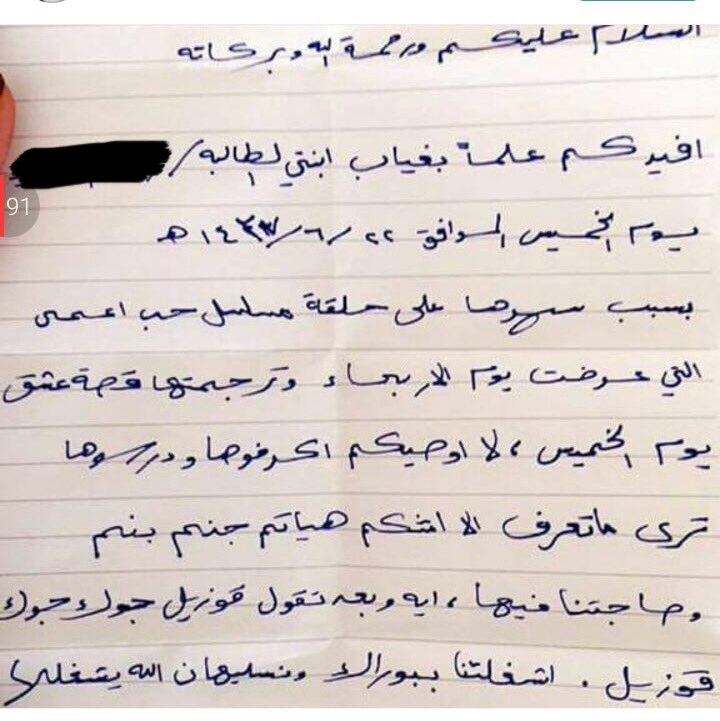 السلام عليكم ورحمة الله وبركاته
افيدكم علماً بغياب ابنتي الطالبه /
يوم الخميس الموافق ٢٢ /٦ /١٤٣٧ هـ
بسبب سهرها على حلقة مسلسل حب اعمى
التي عرضت يوم الاربعاء وترجمتها قصة عشق
يوم الخميس ، لا اوصيكم اكرفوها ودرسوها
ترى ماتعرف الا امثكم هياتم جنم بنم
وصاجتنا فيها ، ايه وبعد تقول قوزيل جوك جوك
قوزيل . اشغلتنا ببوراك ونسليهان الله يشغلها
91